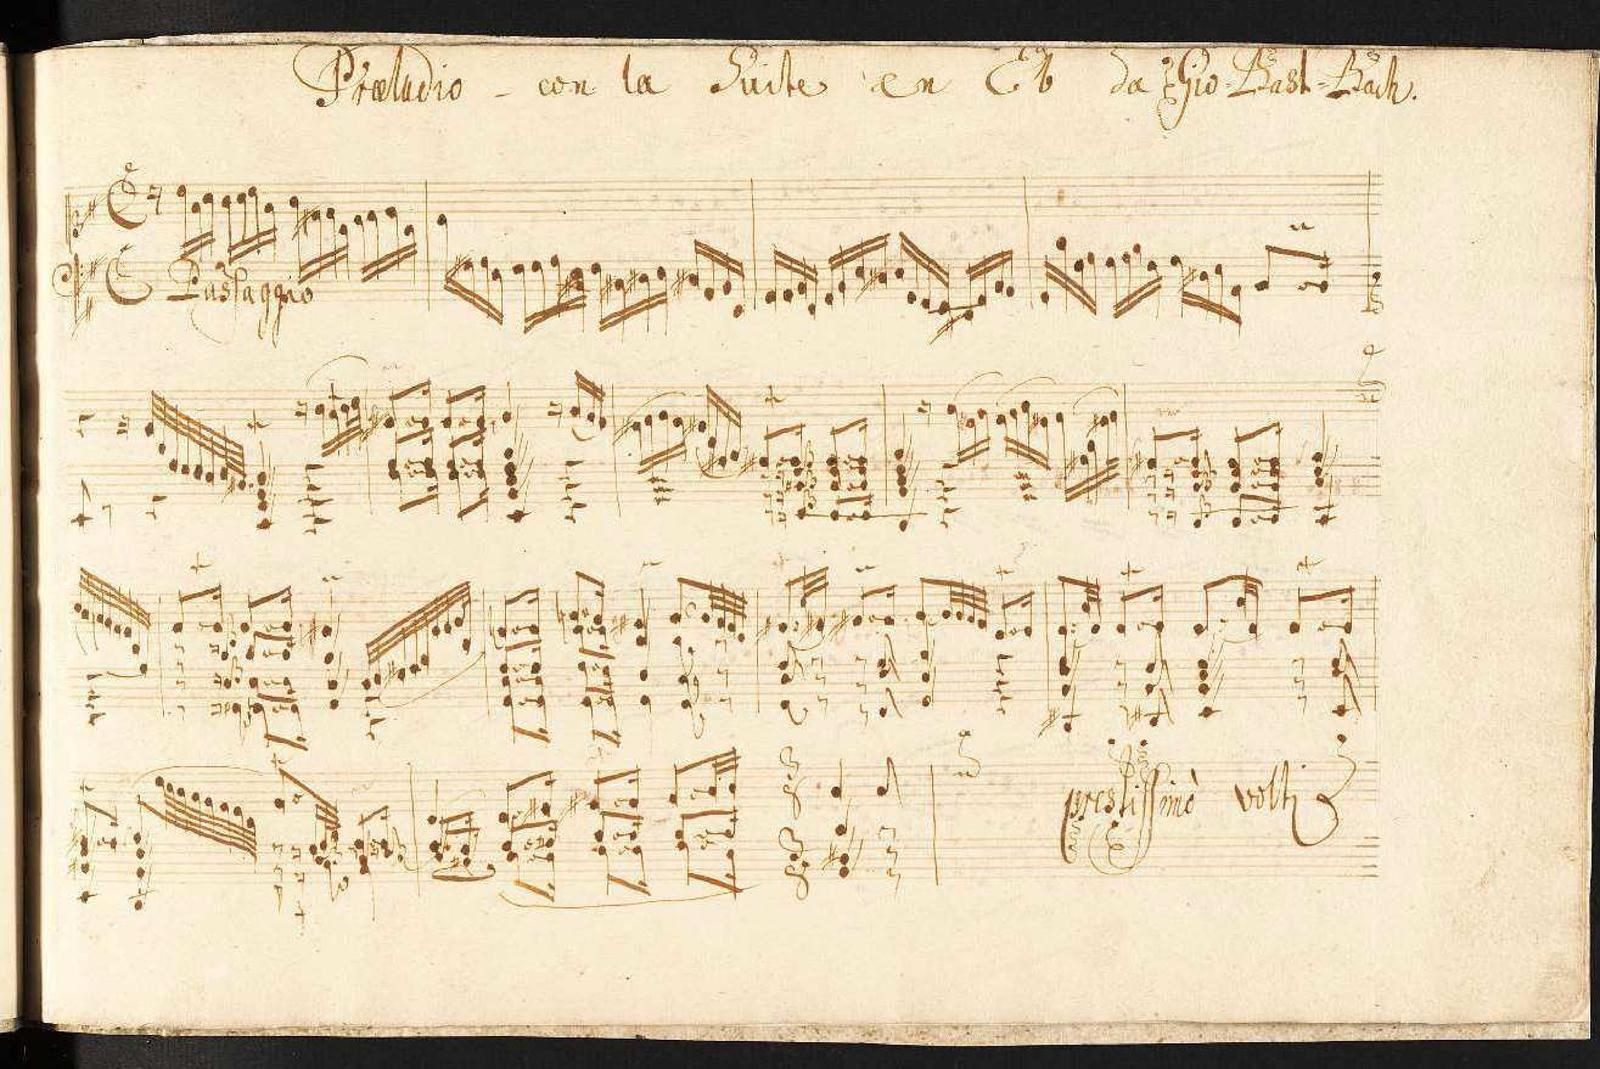 Præludio – con la Suite en Eb da Gio: Bast: Bach.
Passaggio
prestissimò volti